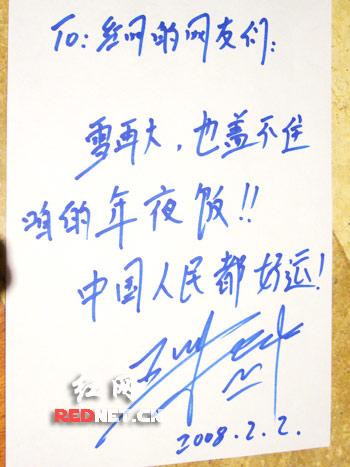 To: 红网的网友们:
雪再大,也盖不住
咱的年夜饭!!
中国人民都好运!
2008.2.2.
红网
REDNET.CN